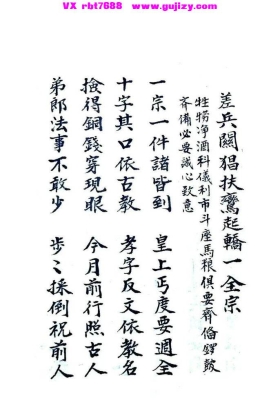 VX rbt7688  www.gujizy.com
差兵關猖扶鸞起轎一全宗
牲犒凈酒科儀利市斗座馬粮俱要齊俻鑼鼓
齊備必要誠心致意
一宗一件諸皆到　皇上丐度要週全
十字其口依古教　孝字反文依教名
撿得銅錢穿現眼　今月前行照古人
弟郎法事不敢少　步々採倒祝前人